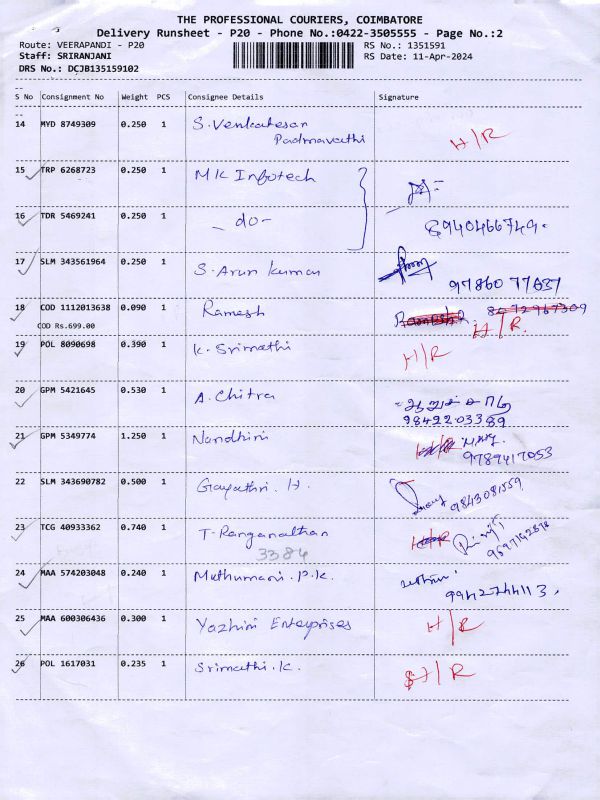 THE PROFESSIONAL COURIERS, COIMBATORE
Delivery Runsheet - P20 - Phone No.:0422-3505555 - Page No.:2
Route: VEERAPANDI - P20
RS No.: 1351591
Staff: SRIRANJANI
RS Date: 11-Apr-2024
DRS No.: DCJB135159102
S No Consignment No Weight PCS Consignee Details Signature
14 MYD 8749309 0.250 1 S. Venkatesan H/R
Padmavathi
15 TRP 6268723 0.250 1 MK Infotech
16 TDR 5469241 0.250 1 - do - 8940466749.
17 SLM 343561964 0.250 1 S. Arun Kumar 97860 77637
18 COD 1112013638 0.090 1 Ramesh H/R.
COD Rs.699.00
19 POL 8090698 0.390 1 K. Srimathi H/R
20 GPM 5421645 0.530 1 A. Chitra
9842203389
21 GPM 5349774 1.250 1 Nandhini 9789417053
22 SLM 343690782 0.500 1 Gayathri. H. 9843081559
23 TCG 40933362 0.740 1 T. Ranganathan H/R
3384
24 MAA 574203048 0.240 1 Muthumani. P.K. 9942744113.
25 MAA 600306436 0.300 1 Yazhini Enterprises H/R
26 POL 1617031 0.235 1 Srimathi. K. H/R